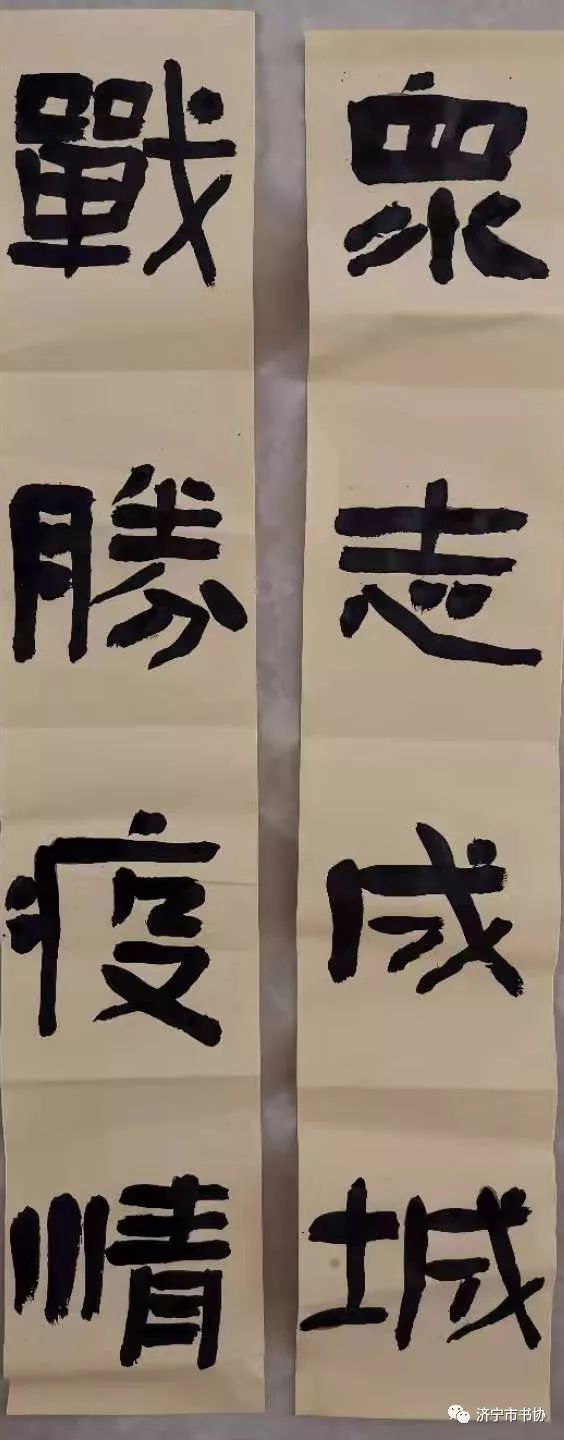 眾志成城
戰勝疫情
济宁市书协